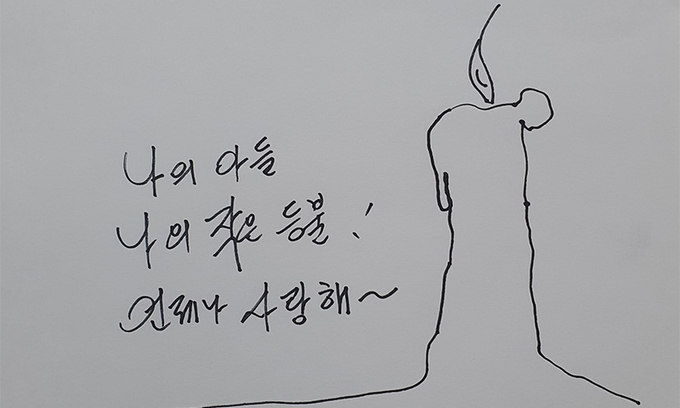 나의 아들
나의 작은 등불!
언제나 사랑해~